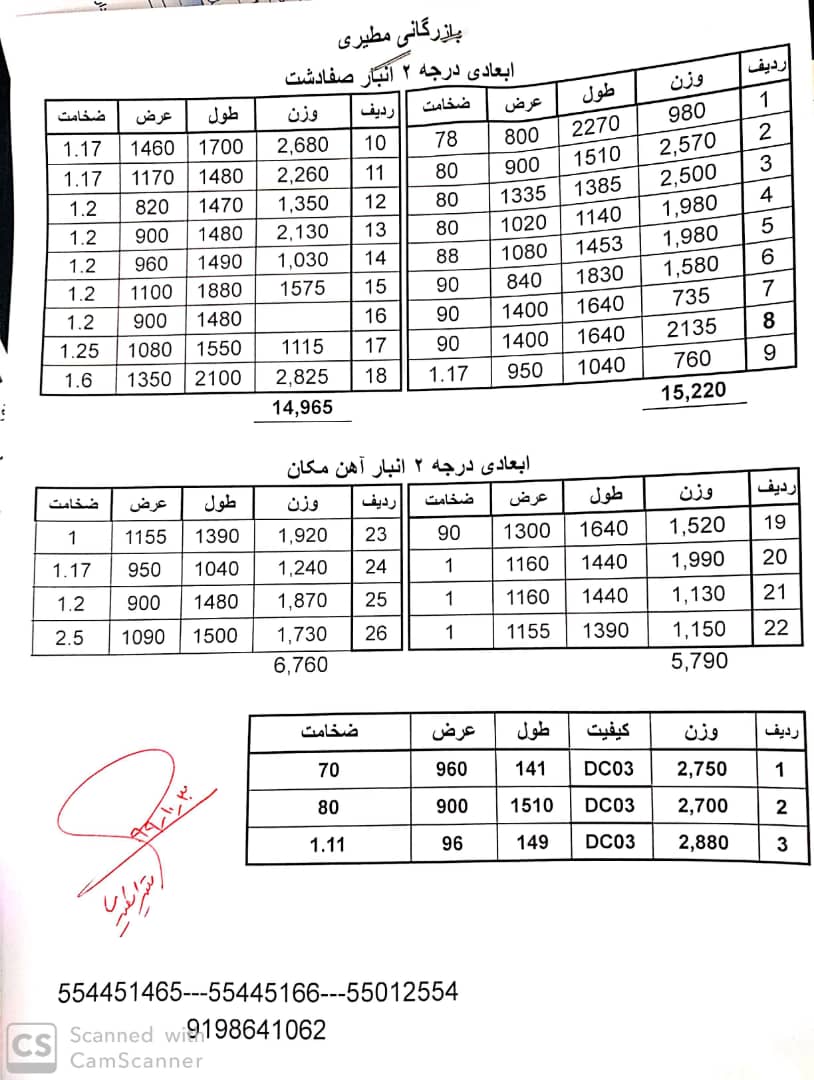 بازرگانی مطیری
ابعادی درجه ۲ انبار صفادشت
ردیف وزن طول عرض ضخامت
1 980 2270 800 78
2 2,570 1510 900 80
3 2,500 1385 1335 80
4 1,980 1140 1020 80
5 1,980 1453 1080 88
6 1,580 1830 840 90
7 735 1640 1400 90
8 2135 1640 1400 90
9 760 1040 950 1.17
15,220
ردیف وزن طول عرض ضخامت
10 2,680 1700 1460 1.17
11 2,260 1480 1170 1.17
12 1,350 1470 820 1.2
13 2,130 1480 900 1.2
14 1,030 1490 960 1.2
15 1575 1880 1100 1.2
16 1480 900 1.2
17 1115 1550 1080 1.25
18 2,825 2100 1350 1.6
14,965
ابعادی درجه ۲ انبار آهن مکان
ردیف وزن طول عرض ضخامت
19 1,520 1640 1300 90
20 1,990 1440 1160 1
21 1,130 1440 1160 1
22 1,150 1390 1155 1
5,790
ردیف وزن طول عرض ضخامت
23 1,920 1390 1155 1
24 1,240 1040 950 1.17
25 1,870 1480 900 1.2
26 1,730 1500 1090 2.5
6,760
ردیف وزن کیفیت طول عرض ضخامت
1 2,750 DC03 141 960 70
2 2,700 DC03 1510 900 80
3 2,880 DC03 149 96 1.11
۹۹-۱۰-۳۰
554451465---55445166---55012554
9198641062
CS Scanned with CamScanner